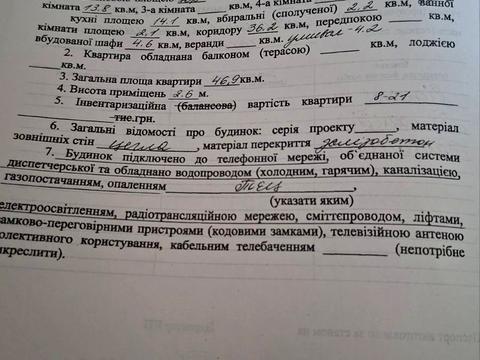 кімната 13.8 кв.м, 3-а кімната кв.м, 4-а кімната
кухні площею 14.1 кв.м, вбиральні (сполученої) 2.2 кв.м, ванної
кімнати площею 2.1 кв.м, коридору 36.2 кв.м, передпокою кв.м,
вбудованої шафи 4.6 кв.м, веранди кв.м - 4.2
2. Квартира обладнана балконом (терасою) кв.м, лоджією
кв.м.
3. Загальна площа квартири 46,9 кв.м.
4. Висота приміщень 2.6 м.
5. Інвентаризаційна (балансова) вартість квартири 8-21
тис.грн.
6. Загальні відомості про будинок: серія проекту, матеріал
зовнішніх стін цегла, матеріал перекриття залізобетон
7. Будинок підключено до телефонної мережі, об'єднаної системи
диспетчерської та обладнано водопроводом (холодним, гарячим), каналізацією,
газопостачанням, опаленням ТЕЦ,
(указати яким)
електроосвітленням, радіотрансляційною мережею, сміттєпроводом, ліфтами,
замково-переговірними пристроями (кодовими замками), телевізійною антеною
колективного користування, кабельним телебаченням (непотрібне
викреслити).